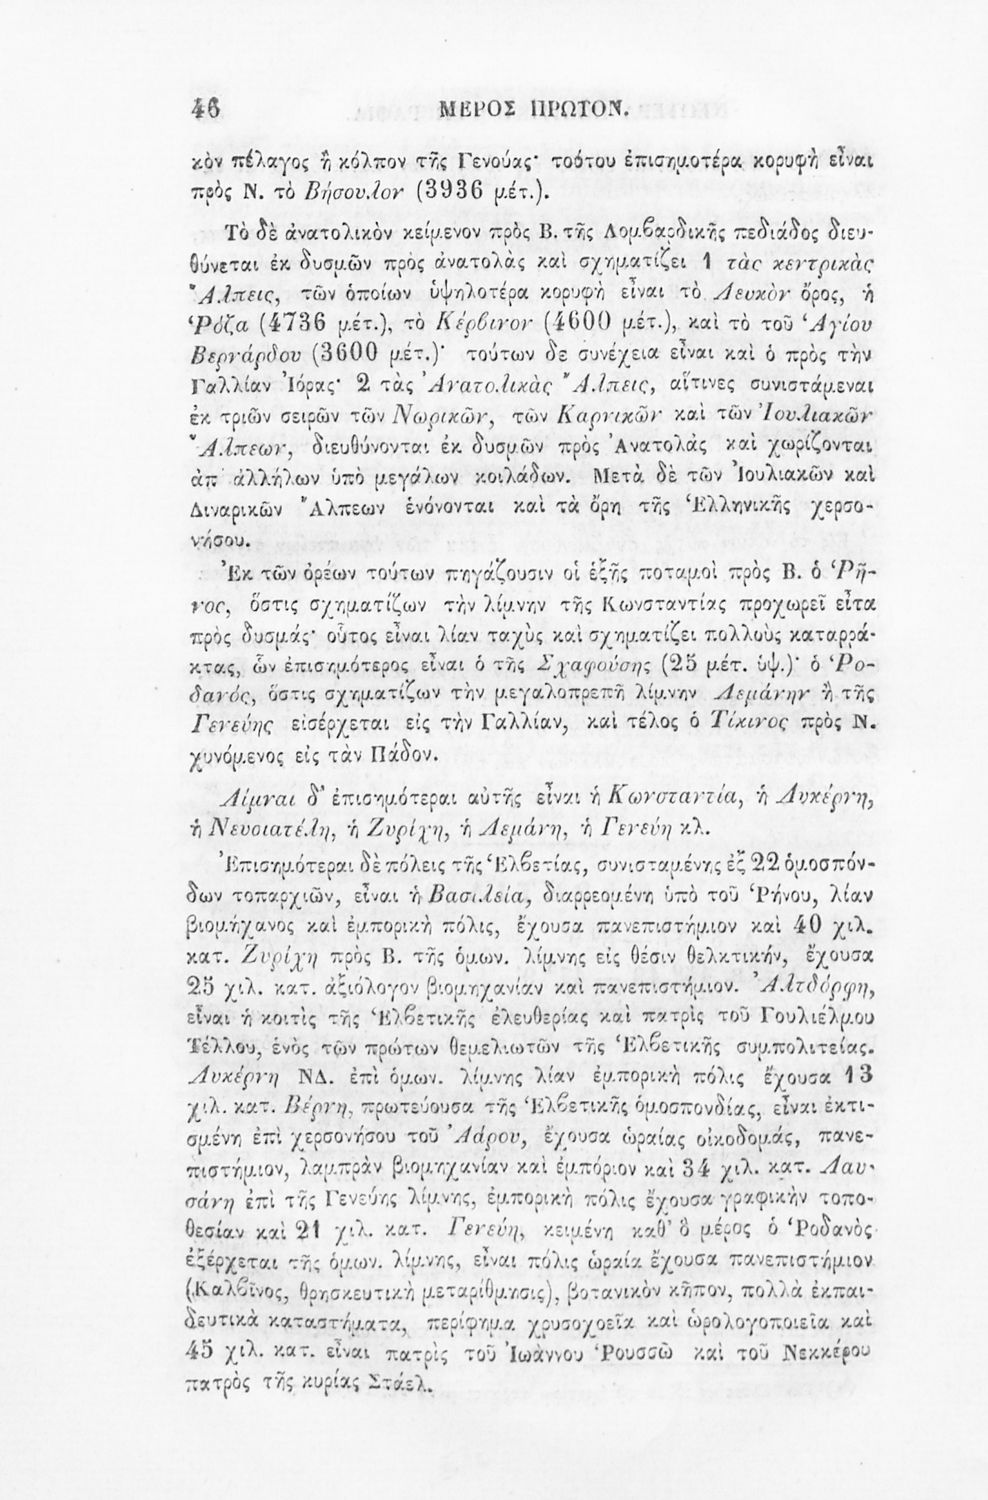 46 ΜΕΡΟΣ ΠΡΩΤΟΝ.
κὸν πέλαγος ἢ κόλπον τῆς Γενούας· τούτου ἐπισημοτέρα κορυφὴ εἶναι
πρὸς Ν. τὸ Βήσουλον (3936 μέτ.).
Τὸ δὲ ἀνατολικὸν κείμενον πρὸς Β. τῆς Λομβαρδικῆς πεδιάδος διευ-
θύνεται ἐκ δυσμῶν πρὸς ἀνατολὰς καὶ σχηματίζει 1 τὰς κεντρικὰς
Ἄλπεις, τῶν ὁποίων ὑψηλοτέρα κορυφὴ εἶναι τὸ Λευκὸν ὄρος, ἡ
Ῥόζα (4736 μέτ.), τὸ Κέρβινον (4600 μέτ.), καὶ τὸ τοῦ Ἁγίου
Βερνάρδου (3600 μέτ.)· τούτων δε συνέχεια εἶναι καὶ ὁ πρὸς τὴν
Γαλλίαν Ἰόρας· 2 τὰς Ἀνατολικὰς Ἄλπεις, αἵτινες συνιστάμεναι
ἐκ τριῶν σειρῶν τῶν Νωρικῶν, τῶν Καρνικῶν καὶ τῶν Ἰουλιακῶν
Ἄλπεων, διευθύνονται ἐκ δυσμῶν πρὸς Ἀνατολὰς καὶ χωρίζονται
ἀπ' ἀλλήλων ὑπὸ μεγάλων κοιλάδων. Μετὰ δὲ τῶν Ἰουλιακῶν καὶ
Διναρικῶν Ἄλπεων ἑνόνονται καὶ τὰ ὄρη τῆς Ἑλληνικῆς χερσο-
νήσου.
Ἐκ τῶν ὀρέων τούτων πηγάζουσιν οἱ ἑξῆς ποταμοὶ πρὸς Β. ὁ Ῥῆ-
νος, ὅστις σχηματίζων τὴν λίμνην τῆς Κωνσταντίας προχωρεῖ εἶτα
πρὸς δυσμάς· οὗτος εἶναι λίαν ταχὺς καὶ σχηματίζει πολλοὺς καταρρά-
κτας, ὧν ἐπισημότερος εἶναι ὁ τῆς Σχαφούσης (25 μέτ. ὑψ.)· ὁ Ῥο-
δανός, ὅστις σχηματίζων τὴν μεγαλοπρεπῆ λίμνην Λεμάνην ἢ τῆς
Γενεύης εἰσέρχεται εἰς τὴν Γαλλίαν, καὶ τέλος ὁ Τίκινος πρὸς Ν.
χυνόμενος εἰς τὰν Πάδον.
Λίμναι δ' ἐπισημότεραι αὐτῆς εἶναι ἡ Κωνσταντία, ἡ Λυκέρνη,
ἡ Νευσιατέλη, ἡ Ζυρίχη, ἡ Λεμάνη, ἡ Γενεύη κλ.
Ἐπισημότεραι δὲ πόλεις τῆς Ἑλβετίας, συνισταμένης ἐξ 22 ὁμοσπόν-
δων τοπαρχιῶν, εἶναι ἡ Βασιλεία, διαρρεομένη ὑπὸ τοῦ Ῥήνου, λίαν
βιομήχανος καὶ ἐμπορικὴ πόλις, ἔχουσα πανεπιστήμιον καὶ 40 χιλ.
κατ. Ζυρίχη πρὸς Β. τῆς ὁμων. λίμνης εἰς θέσιν θελκτικήν, ἔχουσα
25 χιλ. κατ. ἀξιόλογον βιομηχανίαν καὶ πανεπιστήμιον. Ἀλτδόρφη,
εἶναι ἡ κοιτὶς τῆς Ἑλβετικῆς ἐλευθερίας καὶ πατρὶς τοῦ Γουλιέλμου
Τέλλου, ἑνὸς τῶν πρώτων θεμελιωτῶν τῆς Ἑλβετικῆς συμπολιτείας.
Λυκέρνη ΝΔ. ἐπὶ ὁμων. λίμνης λίαν ἐμπορικὴ πόλις ἔχουσα 13
χιλ. κατ. Βέρνη, πρωτεύουσα τῆς Ἑλβετικῆς ὁμοσπονδίας, εἶναι ἐκτι-
σμένη ἐπὶ χερσονήσου τοῦ Ἀάρου, ἔχουσα ὡραίας οἰκοδομάς, πανε-
πιστήμιον, λαμπρὰν βιομηχανίαν καὶ ἐμπόριον καὶ 34 χιλ. κατ. Λαυ-
σάνη ἐπὶ τῆς Γενεύης λίμνης, ἐμπορικὴ πόλις ἔχουσα γραφικὴν τοπο-
θεσίαν καὶ 21 χιλ. κατ. Γενεύη, κειμένη καθ' ὃ μέρος ὁ Ῥοδανὸς
ἐξέρχεται τῆς ὁμων. λίμνης, εἶναι πόλις ὡραία ἔχουσα πανεπιστήμιον
(Καλβῖνος, θρησκευτικὴ μεταρίθμησις), βοτανικὸν κῆπον, πολλὰ ἐκπαι-
δευτικὰ καταστήματα, περίφημα χρυσοχοεῖα καὶ ὡρολογοποιεῖα καὶ
45 χιλ. κατ. εἶναι πατρὶς τοῦ Ἰωάννου Ῥουσσῶ καὶ τοῦ Νεκκέρου
πατρὸς τῆς κυρίας Στάελ.